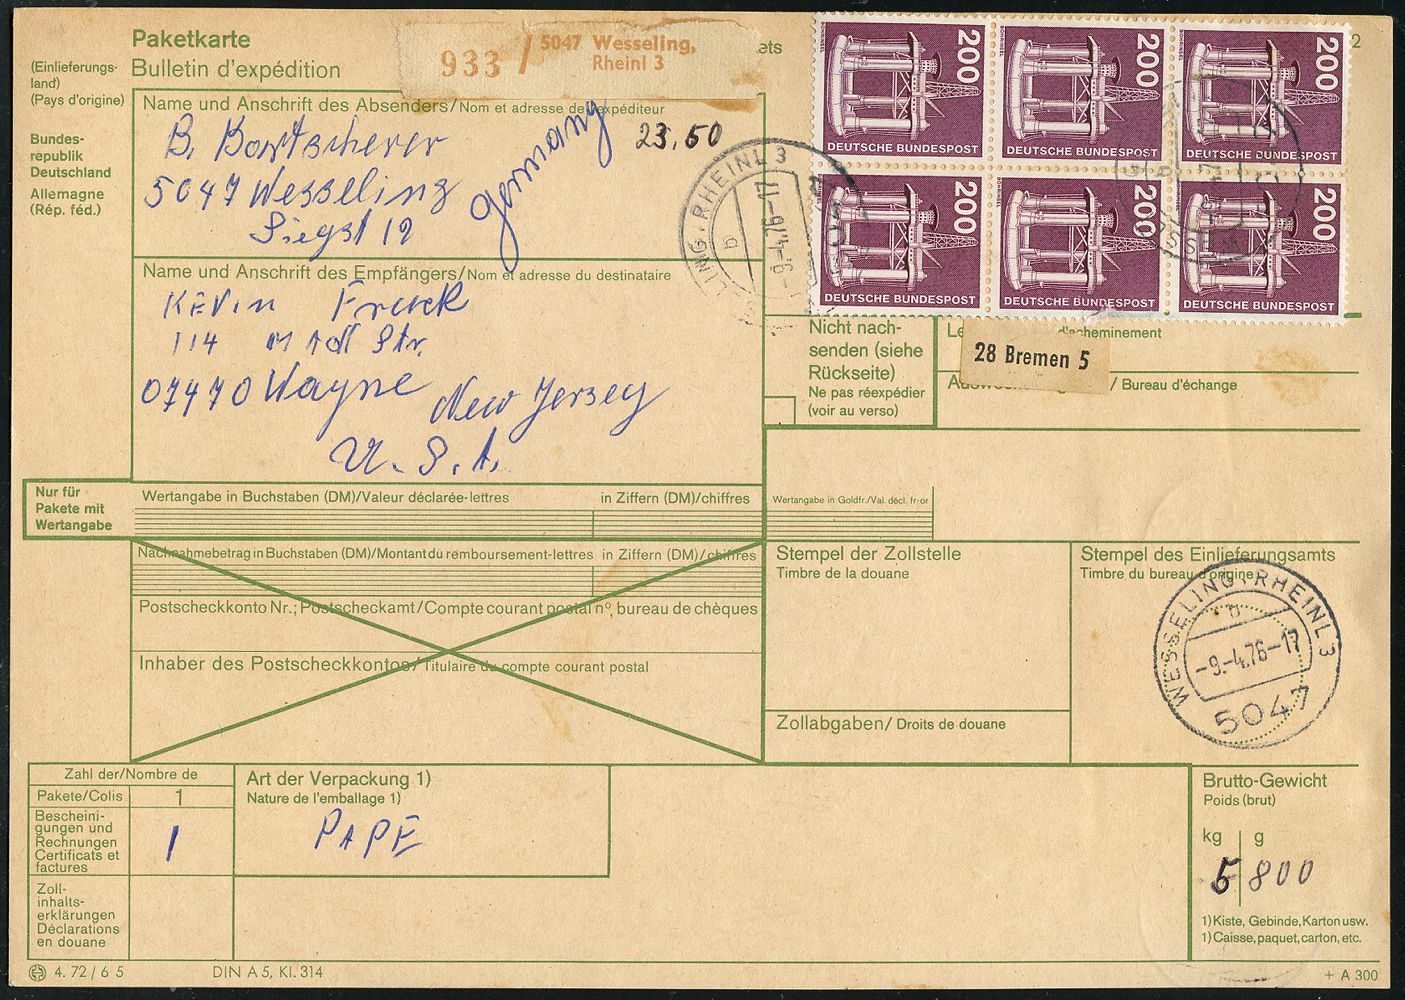 Paketkarte
Bulletin d'expédition
933 / 5047 Wesseling,
Rheinl 3
ets
2
(Einlieferungs-
land)
(Pays d'origine)
Bundes-
republik
Deutschland
Allemagne
(Rép. féd.)
Name und Anschrift des Absenders/Nom et adresse de l'expéditeur
B. Bortscherer
5047 Wesseling
Siegst 12
germany
23,60
Name und Anschrift des Empfängers/Nom et adresse du destinataire
KEVin
114
07470 Wayne New Jersey
U. S. A.
200 200 200
DEUTSCHE BUNDESPOST DEUTSCHE BUNDESPOST DEUTSCHE BUNDESPOST
200 200 200
DEUTSCHE BUNDESPOST DEUTSCHE BUNDESPOST DEUTSCHE BUNDESPOST
Nicht nach-
senden (siehe
Rückseite)
Ne pas réexpédier
(voir au verso)
Le d'acheminement
28 Bremen 5
Auswechs / Bureau d'échange
Nur für
Pakete mit
Wertangabe
Wertangabe in Buchstaben (DM)/Valeur déclarée-lettres
in Ziffern (DM)/chiffres
Wertangabe in Goldfr./Val. décl. fr-or
Nachnahmebetrag in Buchstaben (DM)/Montant du remboursement-lettres
in Ziffern (DM)/chiffres
Postscheckkonto Nr.; Postscheckamt/Compte courant postal nº, bureau de chèques
Inhaber des Postscheckkontos/Titulaire du compte courant postal
Stempel der Zollstelle
Timbre de la douane
Stempel des Einlieferungsamts
Timbre du bureau d'origine
WESSELING, RHEINL 3
b
-9.-4.76-17
5047
Zollabgaben/Droits de douane
Zahl der/Nombre de
Pakete/Colis 1
Bescheini-
gungen und
Rechnungen
Certificats et
factures
1
Zoll-
inhalts-
erklärungen
Déclarations
en douane
Art der Verpackung 1)
Nature de l'emballage 1)
PAPE
Brutto-Gewicht
Poids (brut)
kg g
5 800
1) Kiste, Gebinde, Karton usw.
1) Caisse, paquet, carton, etc.
4. 72 / 6 5
DIN A 5, Kl. 314
+ A 300